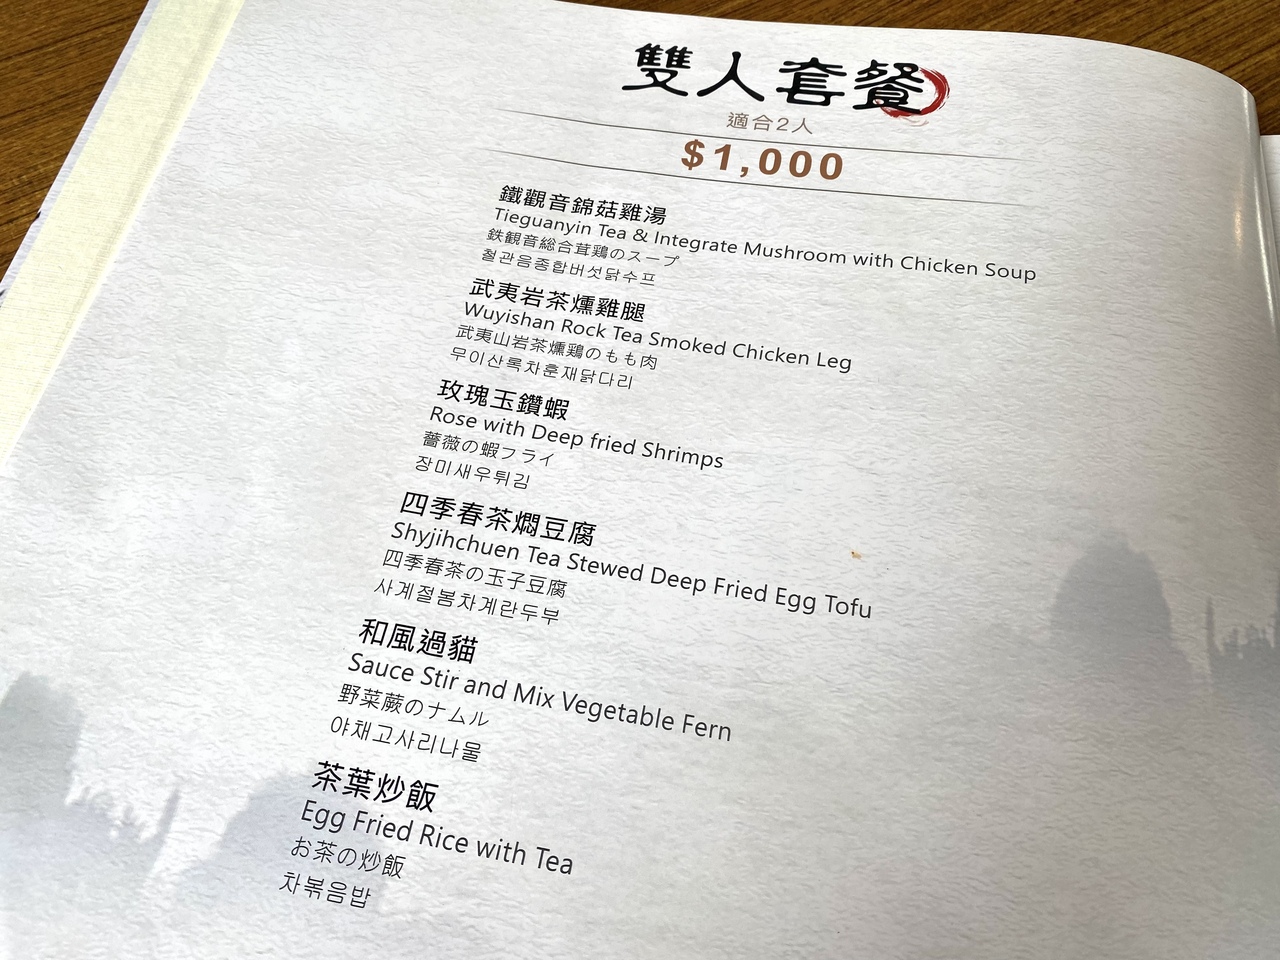 雙人套餐
適合2人
$1,000
鐵觀音錦菇雞湯
Tieguanyin Tea & Integrate Mushroom with Chicken Soup
鉄観音総合茸鶏のスープ
철관음종합버섯닭수프
武夷岩茶燻雞腿
Wuyishan Rock Tea Smoked Chicken Leg
武夷山岩茶燻鶏のもも肉
무이산록차훈재닭다리
玫瑰玉鑽蝦
Rose with Deep fried Shrimps
薔薇の蝦フライ
장미새우튀김
四季春茶燜豆腐
Shyjihchuen Tea Stewed Deep Fried Egg Tofu
四季春茶の玉子豆腐
사계절봄차계란두부
和風過貓
Sauce Stir and Mix Vegetable Fern
野菜蕨のナムル
야채고사리나물
茶葉炒飯
Egg Fried Rice with Tea
お茶の炒飯
차볶음밥